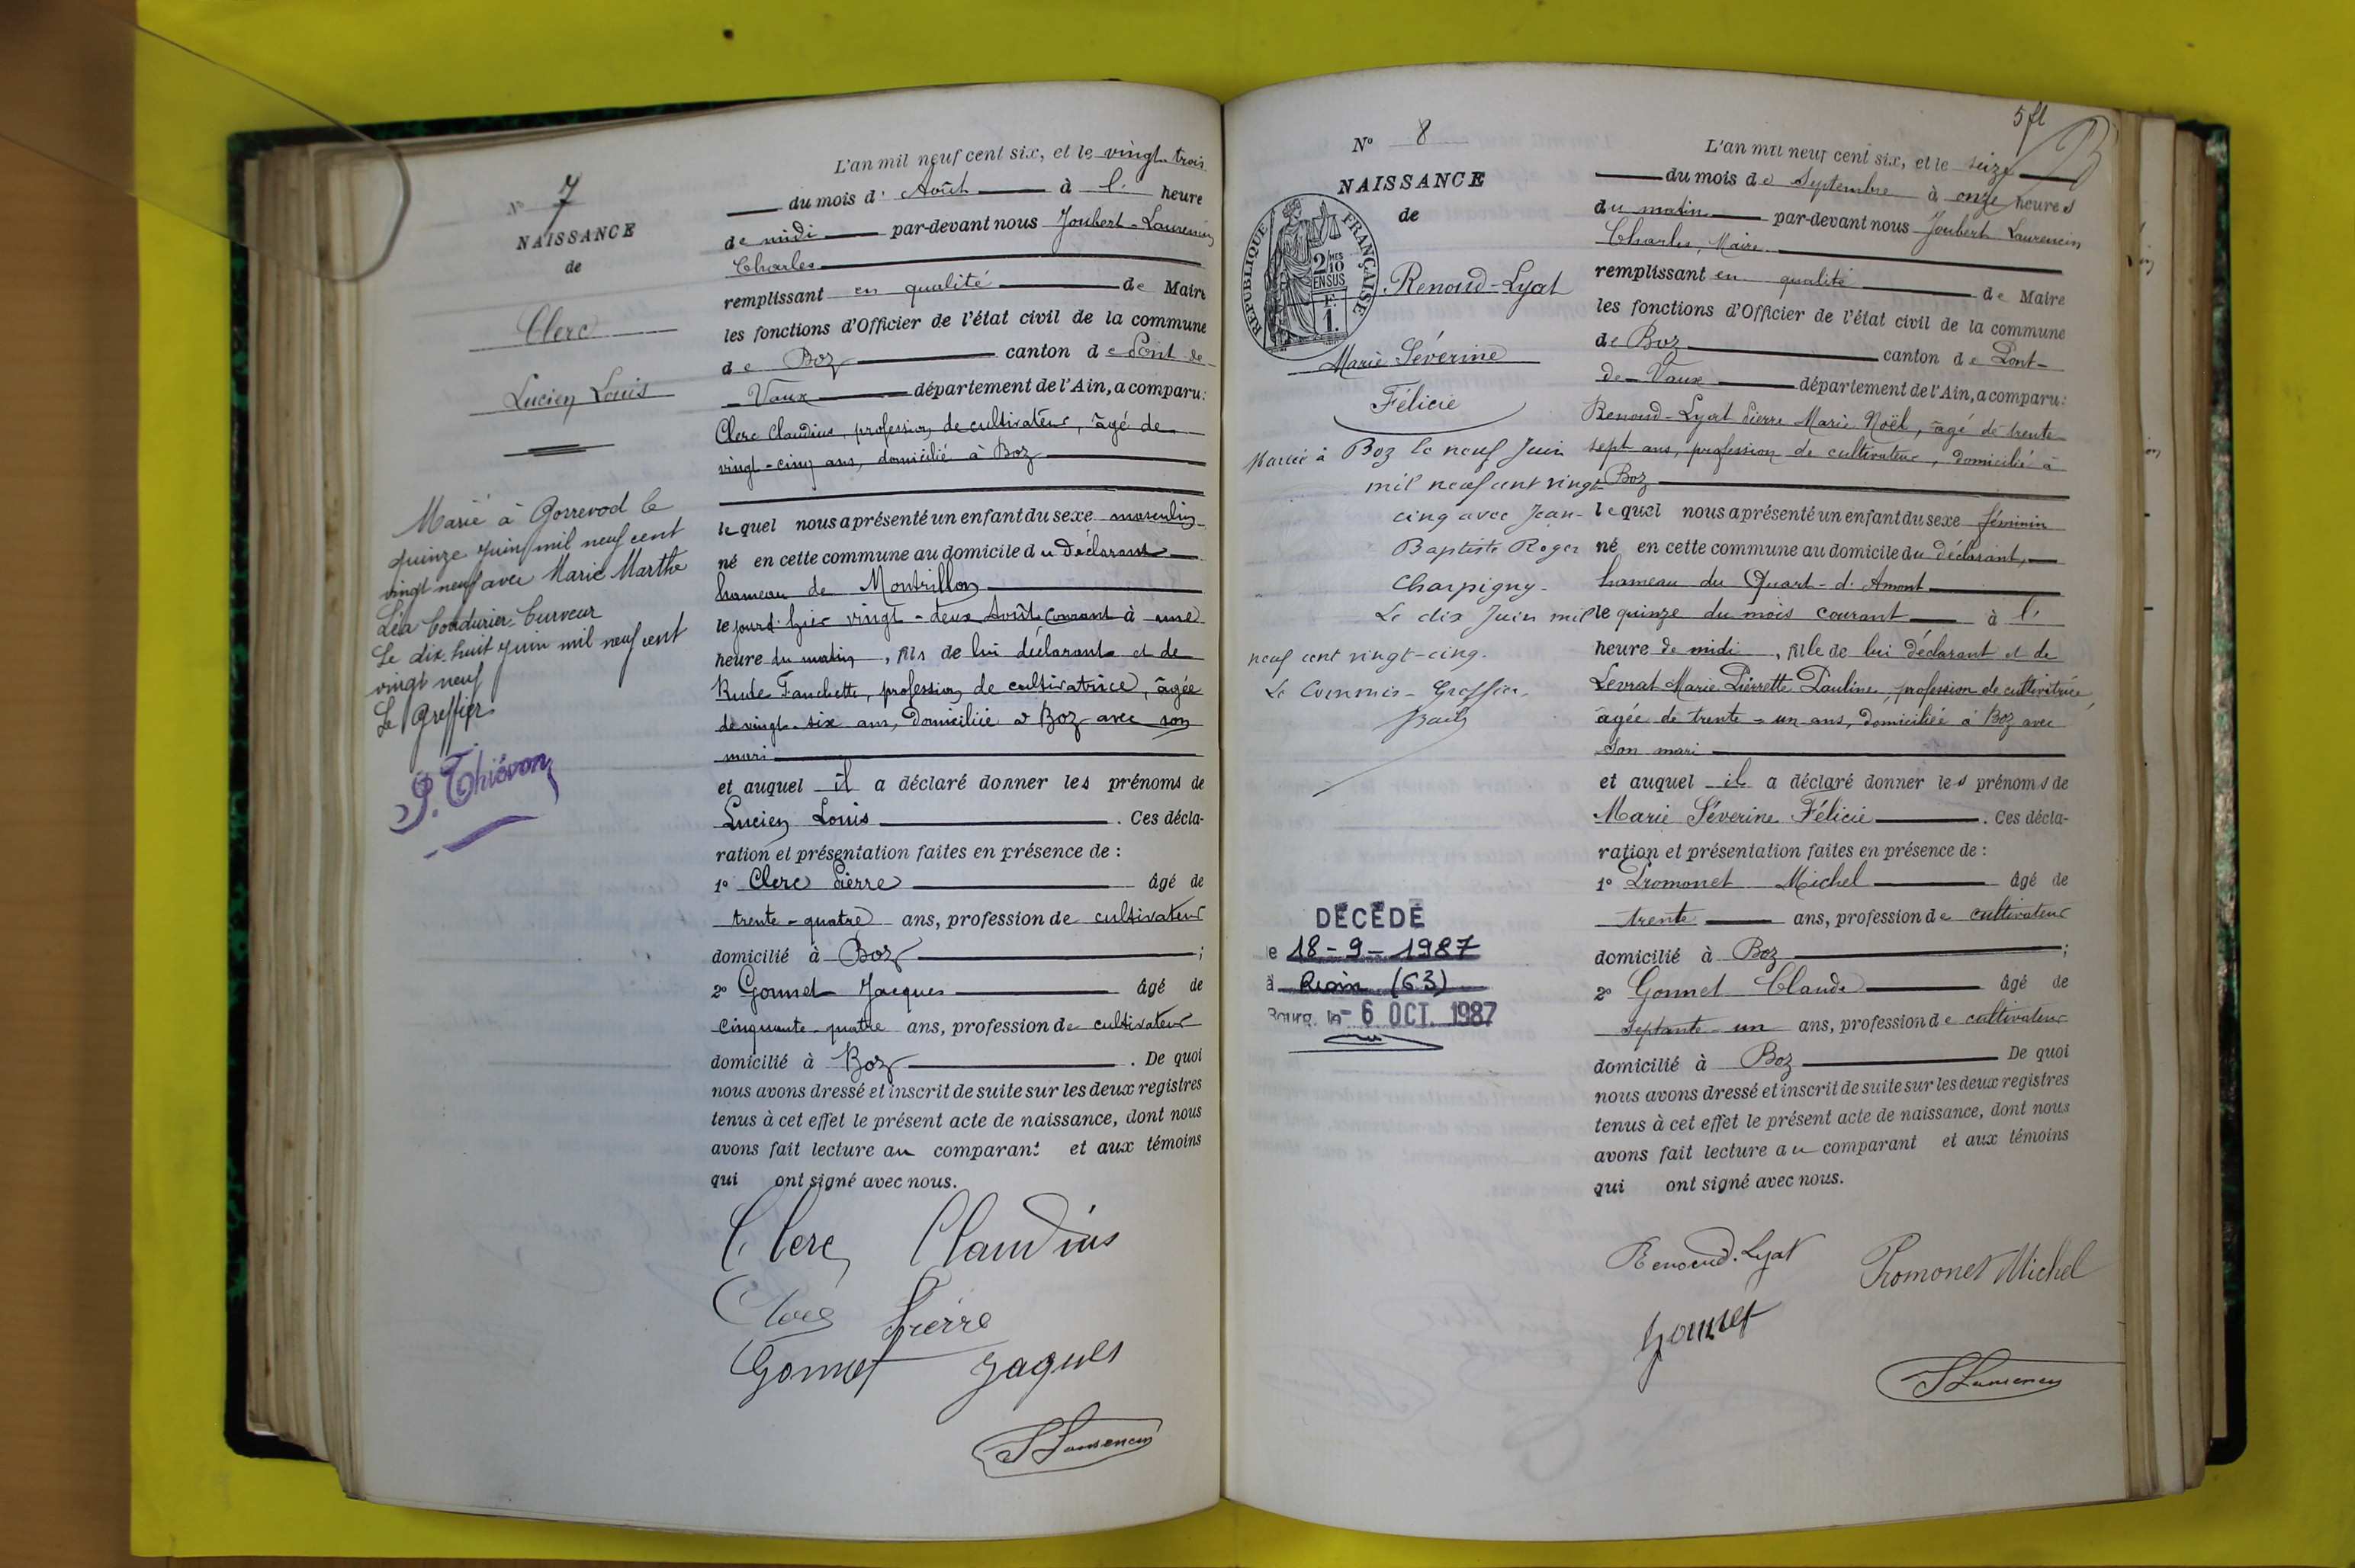 N° 7
NAISSANCE
de
Clerc
Lucien Louis
Marié à Gorrevod le
quinze juin mil neuf cent
vingt neuf avec Marie Marthe
Léa Coudurier-Curveur
Le dix-huit juin mil neuf cent
vingt neuf
Le Greffier
P. Thiévon
L'an mil neuf cent six, et le vingt-trois
du mois d' Août à l' heure
de midi par-devant nous Joubert-Laurencin
Charles
remplissant en qualité de Maire
les fonctions d'Officier de l'état civil de la commune
de Boz canton de Pont-de-
Vaux département de l'Ain, a comparu:
Clerc Claudius, profession de cultivateur, âgé de
vingt-cinq ans, domicilié à Boz
lequel nous a présenté un enfant du sexe masculin
né en cette commune au domicile du déclarant
hameau de Montrillon
le jour d'hier vingt-deux Août courant à une
heure du matin, fils de lui déclarant et de
Fanchette, profession de cultivatrice, âgée
de vingt-six ans, domiciliée à Boz avec son
mari
et auquel il a déclaré donner les prénoms de
Lucien Louis. Ces décla-
ration et présentation faites en présence de :
1° Clerc Pierre âgé de
trente-quatre ans, profession de cultivateur
domicilié à Boz ;
2° Gonnet Jacques âgé de
cinquante-quatre ans, profession de cultivateur
domicilié à Boz. De quoi
nous avons dressé et inscrit de suite sur les deux registres
tenus à cet effet le présent acte de naissance, dont nous
avons fait lecture au comparant et aux témoins
qui ont signé avec nous.
Clerc Claudius
Clerc Pierre
Gonnet Jaques
JLaurencin
5 fl
N° 8
NAISSANCE
de
RÉPUBLIQUE FRANÇAISE
2 MES
10
EN SUS
F.
1.
Renoud-Lyat
Marie Séverine
Félicie
Mariée à Boz le neuf Juin
mil neuf cent vingt-
cinq avec Jean-
Baptiste Roger
Charpigny.
Le dix Juin mil
neuf cent vingt-cinq.
Le Commis-Greffier,
DÉCÉDÉ
le 18-9-1987
à Riom (63)
Bourg, le - 6 OCT. 1987
L'an mil neuf cent six, et le seize
du mois de Septembre à onze heures
du matin par-devant nous Joubert Laurencin
Charles, Maire
remplissant en qualité de Maire
les fonctions d'Officier de l'état civil de la commune
de Boz canton de Pont-
de-Vaux département de l'Ain, a comparu:
Renoud-Lyat Pierre Marie Noël, âgé de trente
sept ans, profession de cultivateur, domicilié à
Boz
lequel nous a présenté un enfant du sexe féminin
né en cette commune au domicile du déclarant,
hameau du Quart-d'Amont
le quinze du mois courant à l'
heure de midi, fille de lui déclarant et de
Levrat Marie Pierrette Pauline, profession de cultivatrice,
âgée de trente-un ans, domiciliée à Boz avec
son mari
et auquel il a déclaré donner les prénoms de
Marie Séverine Félicie. Ces décla-
ration et présentation faites en présence de :
1° Promonet Michel âgé de
trente ans, profession de cultivateur
domicilié à Boz ;
2° Gonnet Claude âgé de
septante-un ans, profession de cultivateur
domicilié à Boz De quoi
nous avons dressé et inscrit de suite sur les deux registres
tenus à cet effet le présent acte de naissance, dont nous
avons fait lecture au comparant et aux témoins
qui ont signé avec nous.
Renoud-Lyat Promonet Michel
Gonnet
JLaurencin